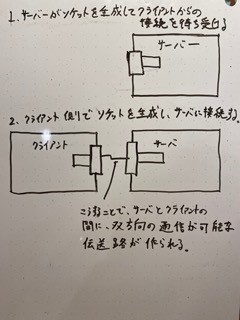 1. サーバーがソケットを生成してクライアントからの
接続を待ち受ける
サーバー
2. クライアント側でソケットを生成し、サーバに接続する。
クライアント
サーバ
こうすることで、サーバとクライアントの
間に、双方向の通信が可能な
伝送路が作られる。